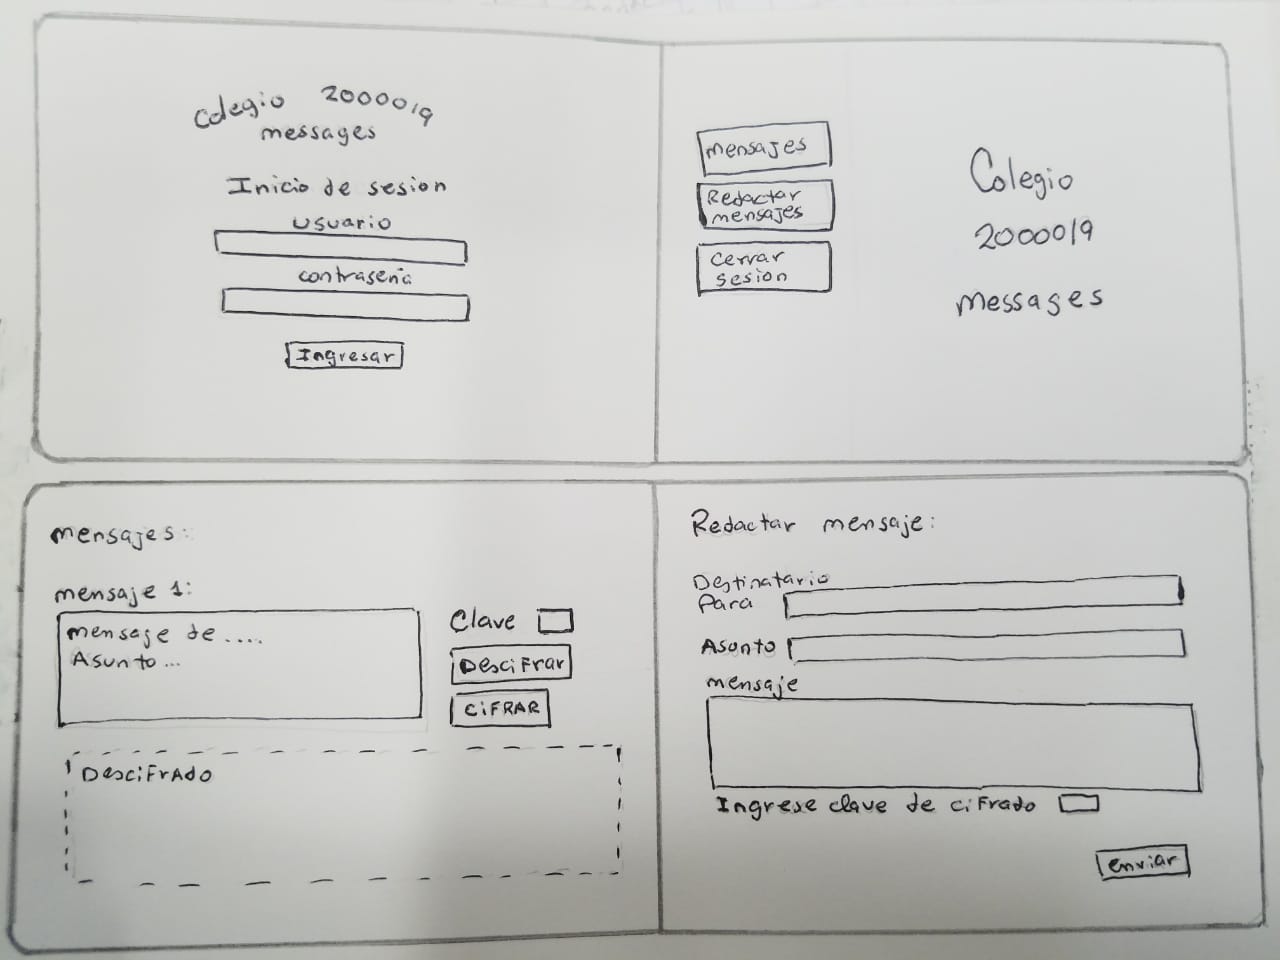 Colegio 2000019
messages
Inicio de sesion
usuario
contraseña
Ingresar
mensajes
Redactar
mensajes
Cerrar
sesion
Colegio
2000019
Messages
mensajes:
mensaje 1:
mensaje de ....
Asunto ...
Clave
DesciFrar
CiFRAR
DesciFrAdo
Redactar mensaje:
Destinatario
Para
Asunto
mensaje
Ingrese clave de ciFrado
enviar